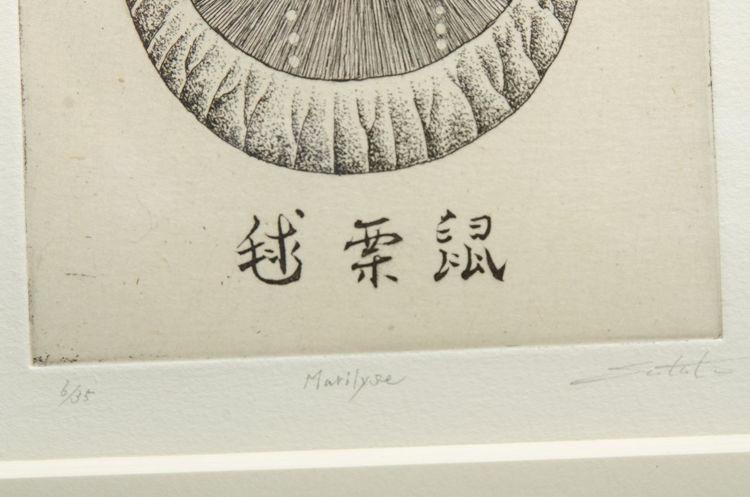 毬栗鼠
6/35 Marilyse